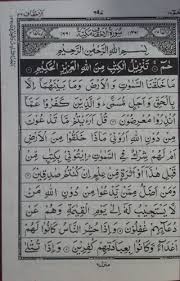 بِسْمِ اللهِ الرَّحْمٰنِ الرَّحِيْمِ
حٰمٓ تَنْزِيْلُ الْكِتٰبِ مِنَ اللهِ الْعَزِيْزِ الْحَكِيْمِ
مَا خَلَقْنَا السَّمٰوٰتِ وَالْاَرْضَ وَمَا بَيْنَهُمَاۤ اِلَّا
بِالْحَقِّ وَاَجَلٍ مُّسَمًّى وَالَّذِيْنَ كَفَرُوْا عَمَّاۤ
اُنْذِرُوْا مُعْرِضُوْنَ قُلْ اَرَءَيْتُمْ مَّا تَدْعُوْنَ
مِنْ دُوْنِ اللهِ اَرُوْنِيْ مَاذَا خَلَقُوْا مِنَ الْاَرْضِ
اَمْ لَهُمْ شِرْكٌ فِي السَّمٰوٰتِ اِيْتُوْنِيْ بِكِتٰبٍ مِّنْ
قَبْلِ هٰذَاۤ اَوْ اَثٰرَةٍ مِّنْ عِلْمٍ اِنْ كُنْتُمْ صٰدِقِيْنَ
وَمَنْ اَضَلُّ مِمَّنْ يَّدْعُوْا مِنْ دُوْنِ اللهِ مَنْ
لَّا يَسْتَجِيْبُ لَهٗۤ اِلٰى يَوْمِ الْقِيٰمَةِ وَهُمْ عَنْ
دُعَآئِهِمْ غٰفِلُوْنَ وَاِذَا حُشِرَ النَّاسُ كَانُوْا لَهُمْ
اَعْدَآءً وَّكَانُوْا بِعِبَادَتِهِمْ كٰفِرِيْنَ وَاِذَا تُتْلٰى